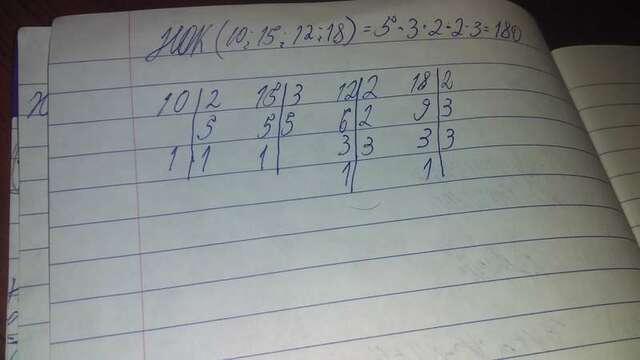 НОК (10; 15; 12; 18) = 5·3·2·2·3 = 180
10 | 2 15 | 3 12 | 2 18 | 2
| 5 5 | 5 6 | 2 9 | 3
1 | 1 1 | 3 | 3 3 | 3
1 | 1 |